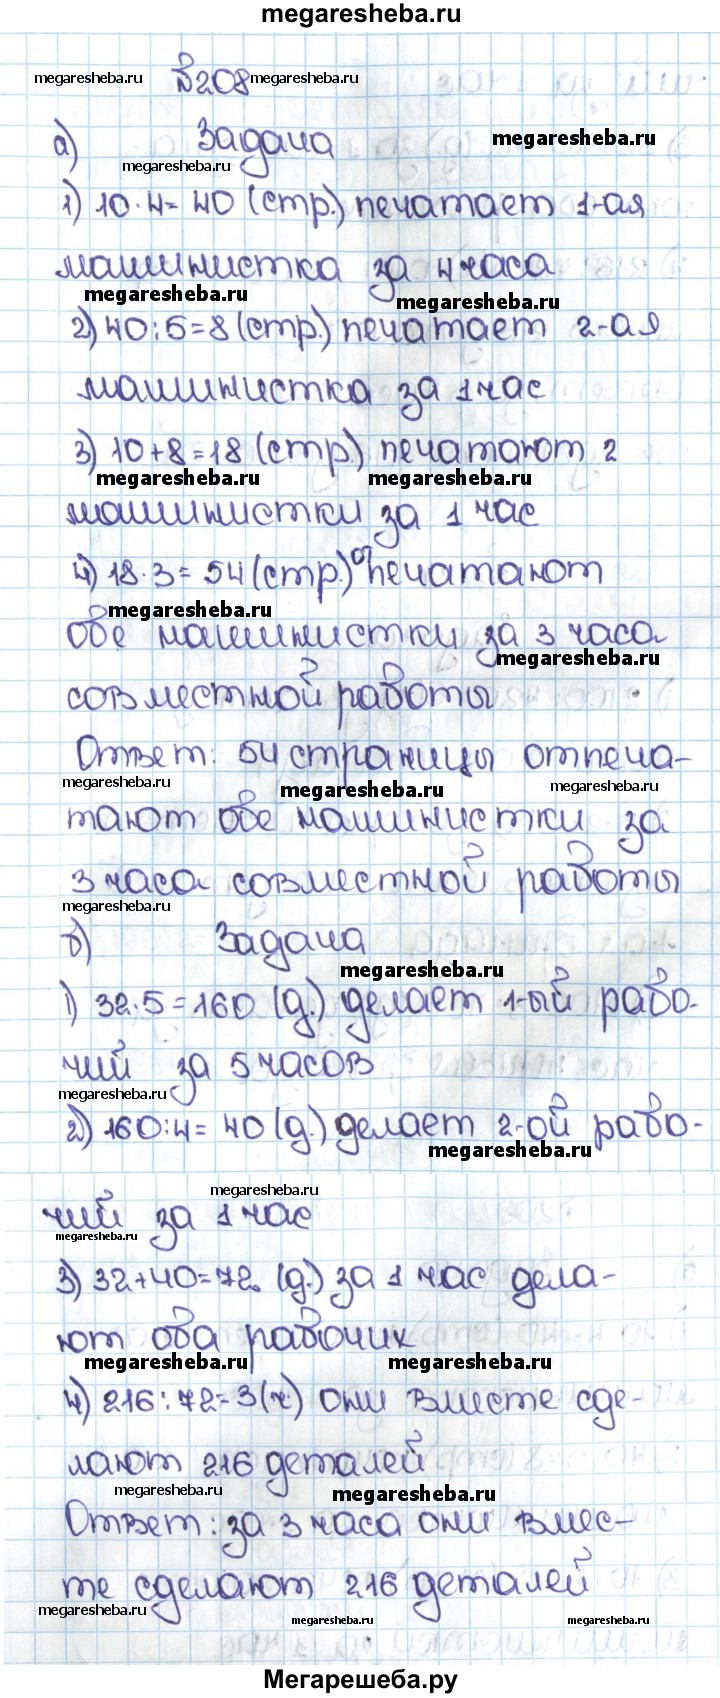 megaresheba.ru
megaresheba.ru №208 megaresheba.ru
а) Задача megaresheba.ru
megaresheba.ru
1) 10·4=40 (стр.) печатает 1-ая
машинистка за 4 часа
megaresheba.ru megaresheba.ru
2) 40:5=8 (стр.) печатает 2-ая
машинистка за 1 час
3) 10+8=18 (стр.) печатают 2
megaresheba.ru megaresheba.ru
машинистки за 1 час
4) 18·3=54 (стр.) отпечатают
megaresheba.ru
обе машинистки за 3 часа
megaresheba.ru
совместной работы
Ответ: 54 страницы отпеча-
megaresheba.ru megaresheba.ru megaresheba.ru
тают обе машинистки за
3 часа совместной работы
megaresheba.ru
б) Задача
megaresheba.ru
1) 32·5=160 (д.) делает 1-ый рабо-
чий за 5 часов
megaresheba.ru
2) 160:4=40 (д.) делает 2-ой рабо-
megaresheba.ru
megaresheba.ru
чий за 1 час
megaresheba.ru
3) 32+40=72 (д.) за 1 час дела-
ют оба рабочих
megaresheba.ru megaresheba.ru
4) 216:72=3(ч.) они вместе сде-
лают 216 деталей
megaresheba.ru megaresheba.ru
Ответ: за 3 часа они вмес-
те сделают 216 деталей
megaresheba.ru megaresheba.ru megaresheba.ru
Мегарешеба.ру